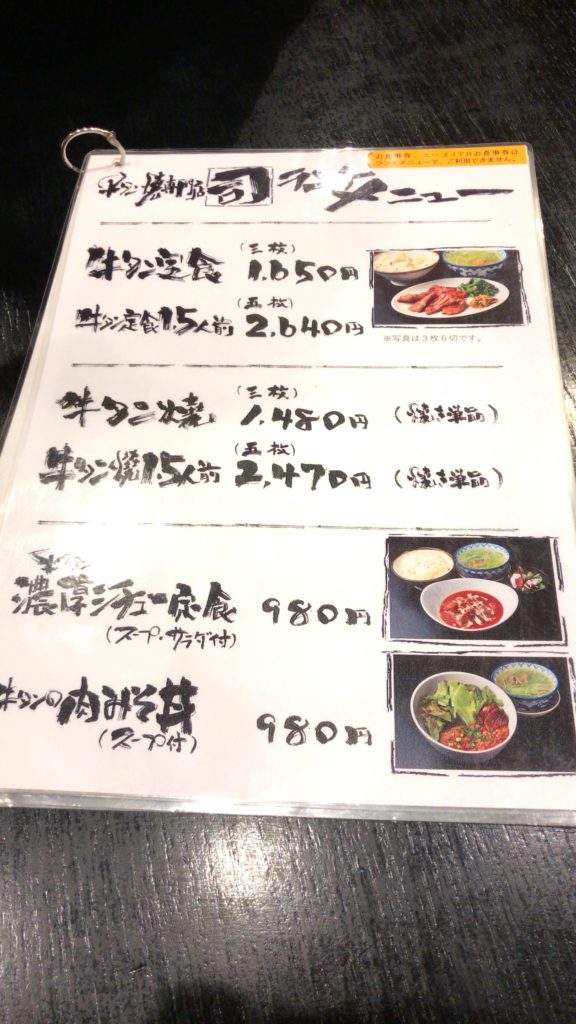 お食事券、エースJTBお食事券は
ランチメニューで、ご利用できません。
牛タン焼専門店 司 ランチメニュー
牛タン定食 (三枚) 1.650円
牛タン定食1.5人前 (五枚) 2.640円
※写真は3枚6切です。
牛タン焼 (三枚) 1.480円 (焼き単品)
牛タン焼1.5人前 (五枚) 2.470円 (焼き単品)
濃厚シチュー定食 980円
(スープ・サラダ付)
牛タンの肉みそ丼 980円
(スープ付)